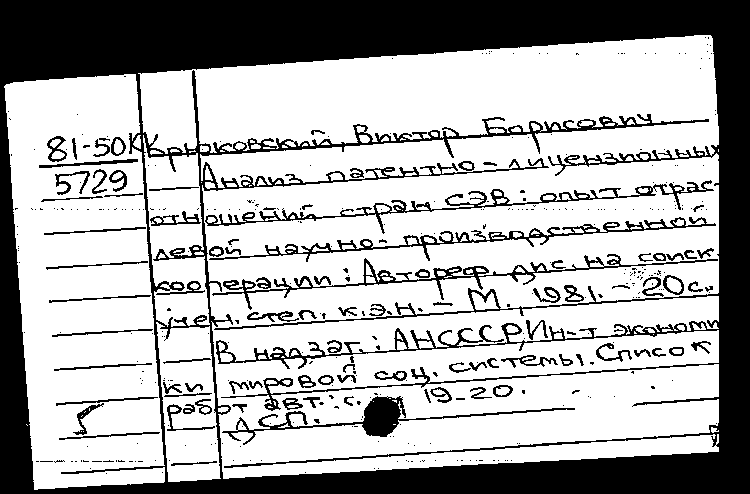 81-50К
5729
Крюковский, Виктор Борисович.
Анализ патентно-лицензионных
отношений стран СЭВ: опыт отрас-
левой научно-производственной
кооперации: Автореф. дис. на соиск.
учен. степ. к.э.н. - М., 1981. - 20с.
В надзаг.: АНСССР, Ин-т экономи
ки мировой соц. системы. Список
работ авт.: с. 19-20.
ДСП.